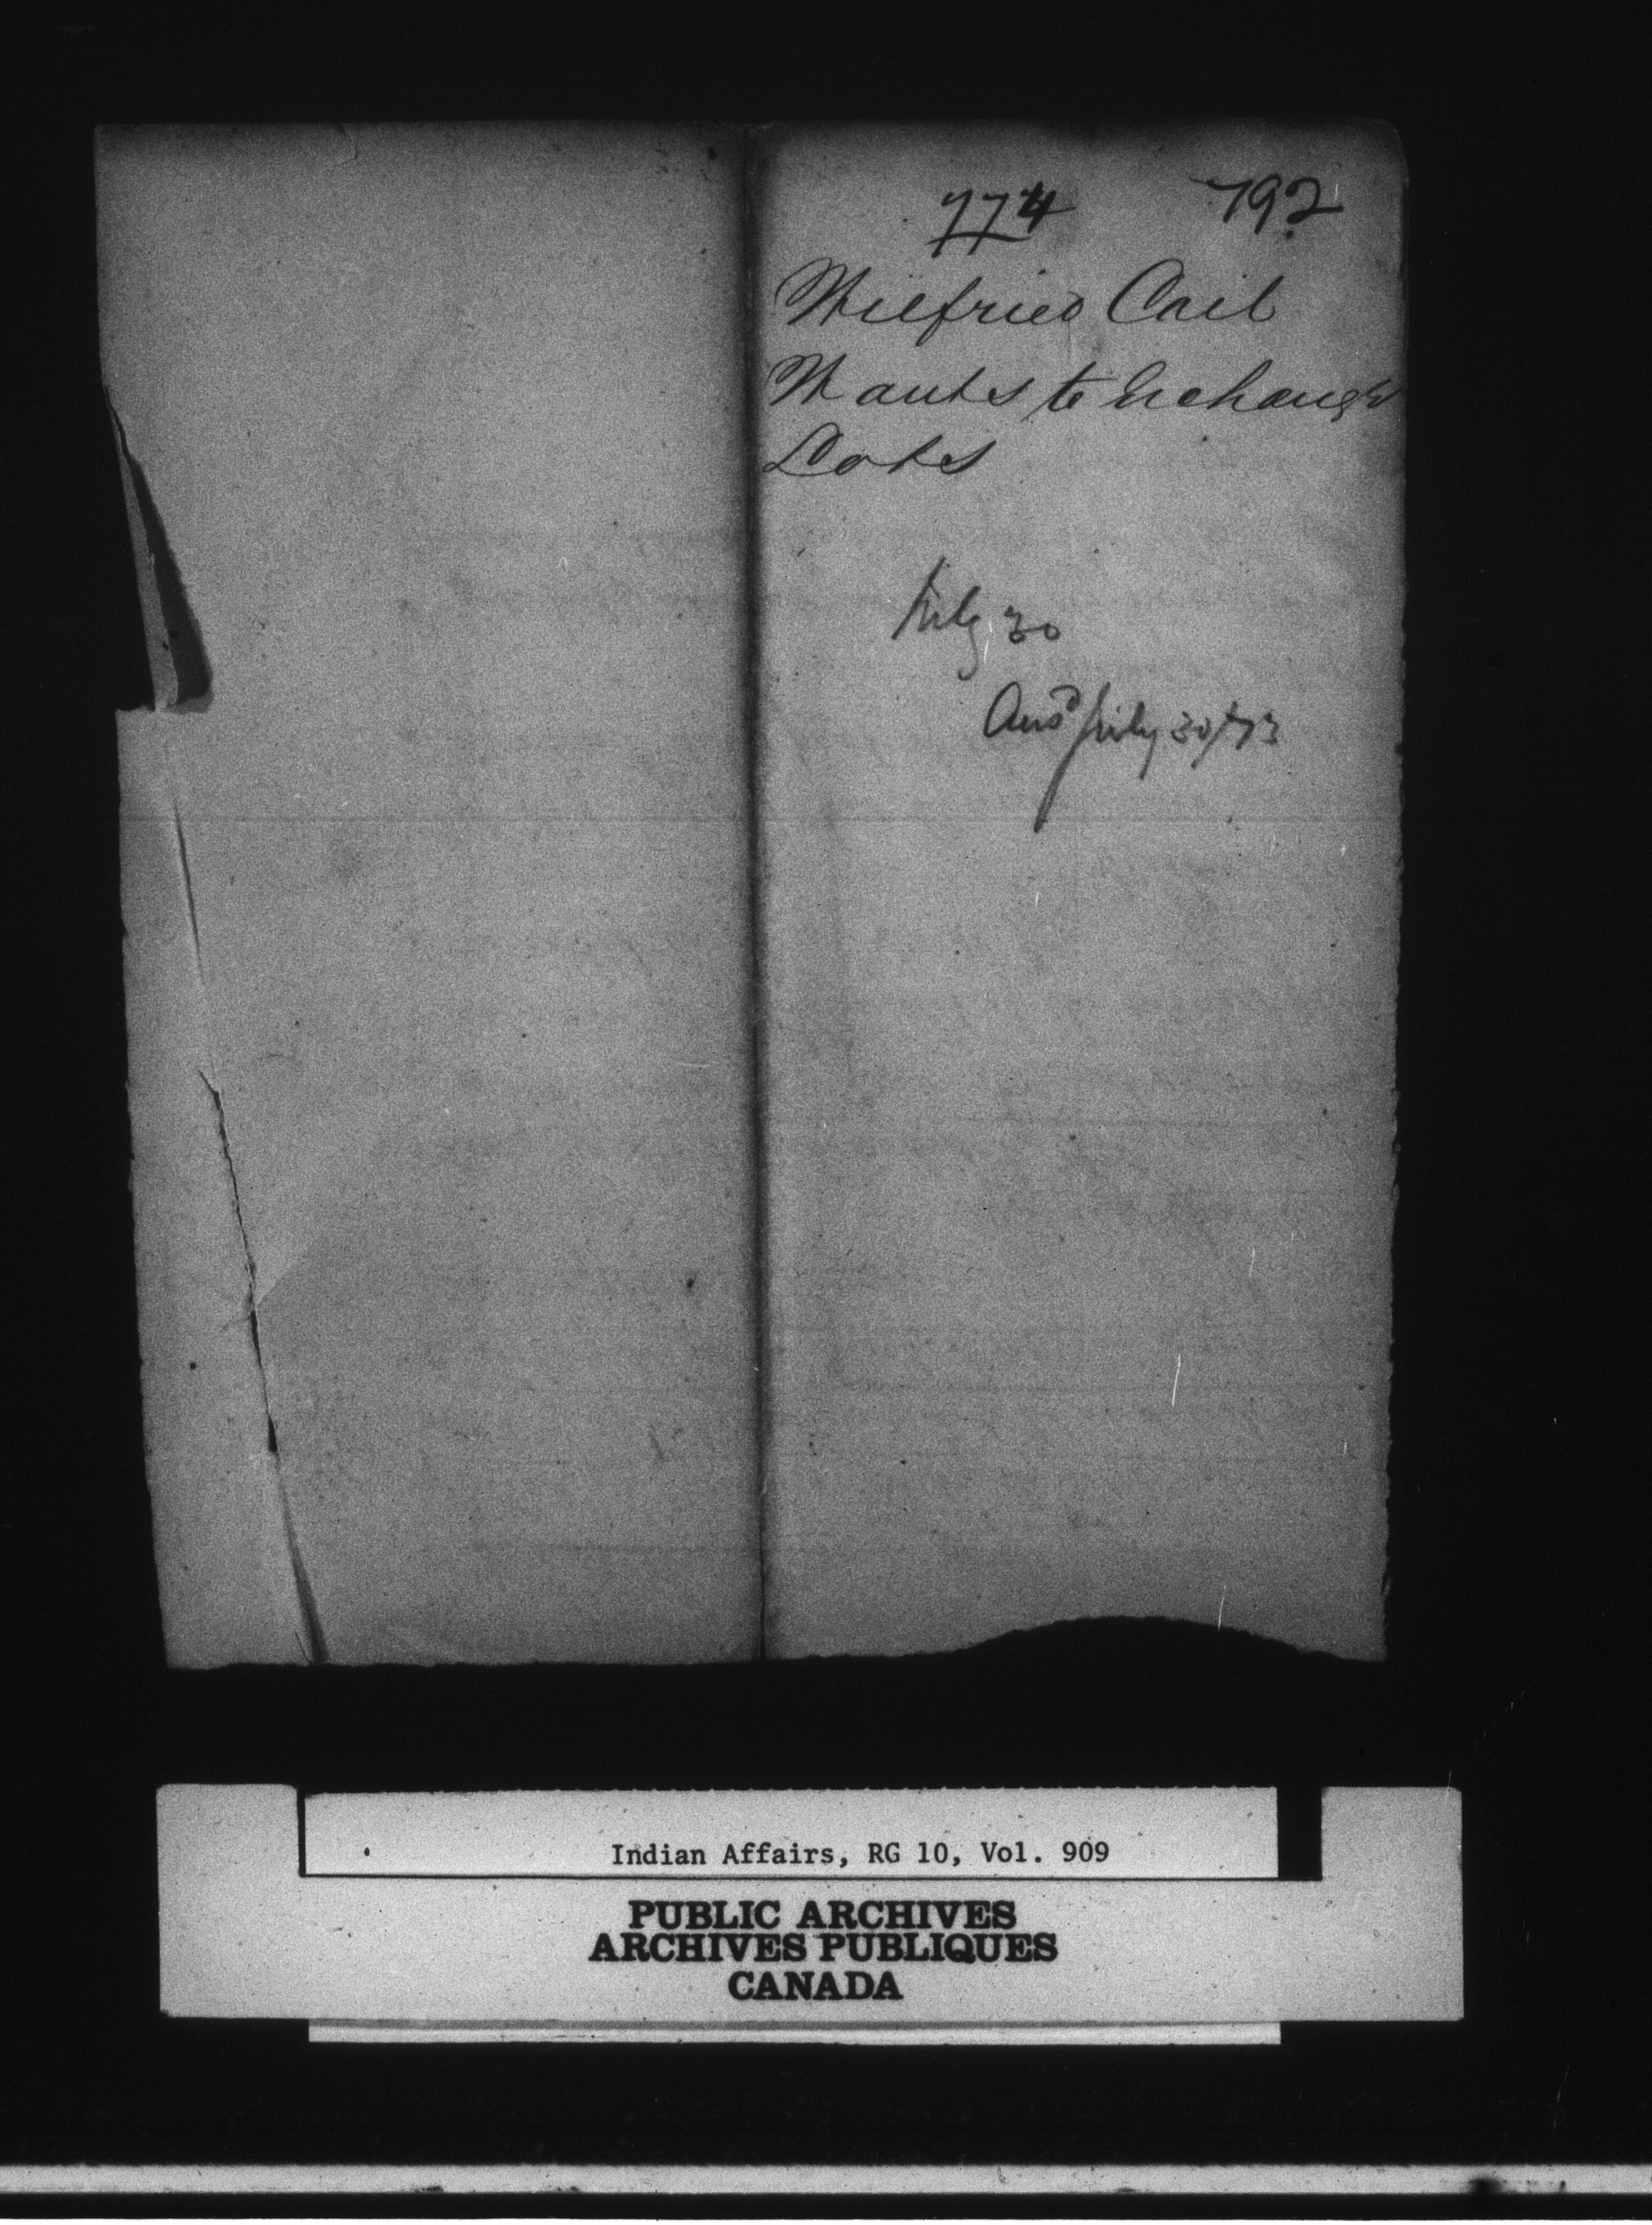 774 792
Wilfried Cail
Wants to Exchange
Lots
July 30
Ansd July 30/73
Indian Affairs, RG 10, Vol. 909
PUBLIC ARCHIVES
ARCHIVES PUBLIQUES
CANADA